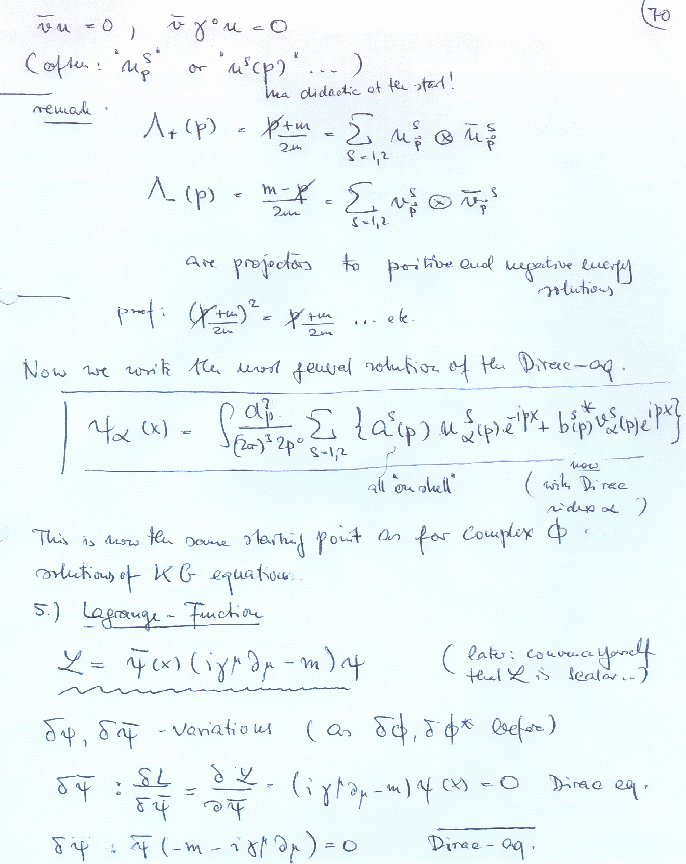 (70
v̄u = 0 , v̄γ⁰u = 0
(often: "u_p^s" or "u^s(p)" ... )
didactic at the start!
remark:
Λ₊(p) = (p̸+m)/2m = Σ_{s=1,2} u_p^s ⊗ ū_p^s
Λ₋(p) = (m-p̸)/2m = Σ_{s=1,2} v_p^s ⊗ v̄_p^s
are projectors to positive and negative energy
solutions
proof: ((p̸+m)/2m)² = (p̸+m)/2m ... etc.
Now we write the most general solution of the Dirac-eq.
ψ_α(x) = ∫ d³p/((2π)³ 2p⁰) Σ_{s=1,2} { a^s(p) u_α^s(p) e^{-ipx} + b^s*(p) v_α^s(p) e^{ipx} }
all "on shell" (now with Dirac index α)
This is now the same starting point as for complex ϕ
solutions of KG equation.
5.) Lagrange-Function
ℒ = ψ̄(x)(iγ^μ∂_μ - m)ψ (later: convince yourself
that ℒ is scalar..)
δψ, δψ̄ - variations (as δϕ, δϕ* before)
δψ̄ : δL/δψ̄ = ∂ℒ/∂ψ̄ = (iγ^μ∂_μ - m)ψ(x) = 0 Dirac eq.
δψ : ψ̄(-m - iγ^μ∂_μ) = 0 Dirac-eq.